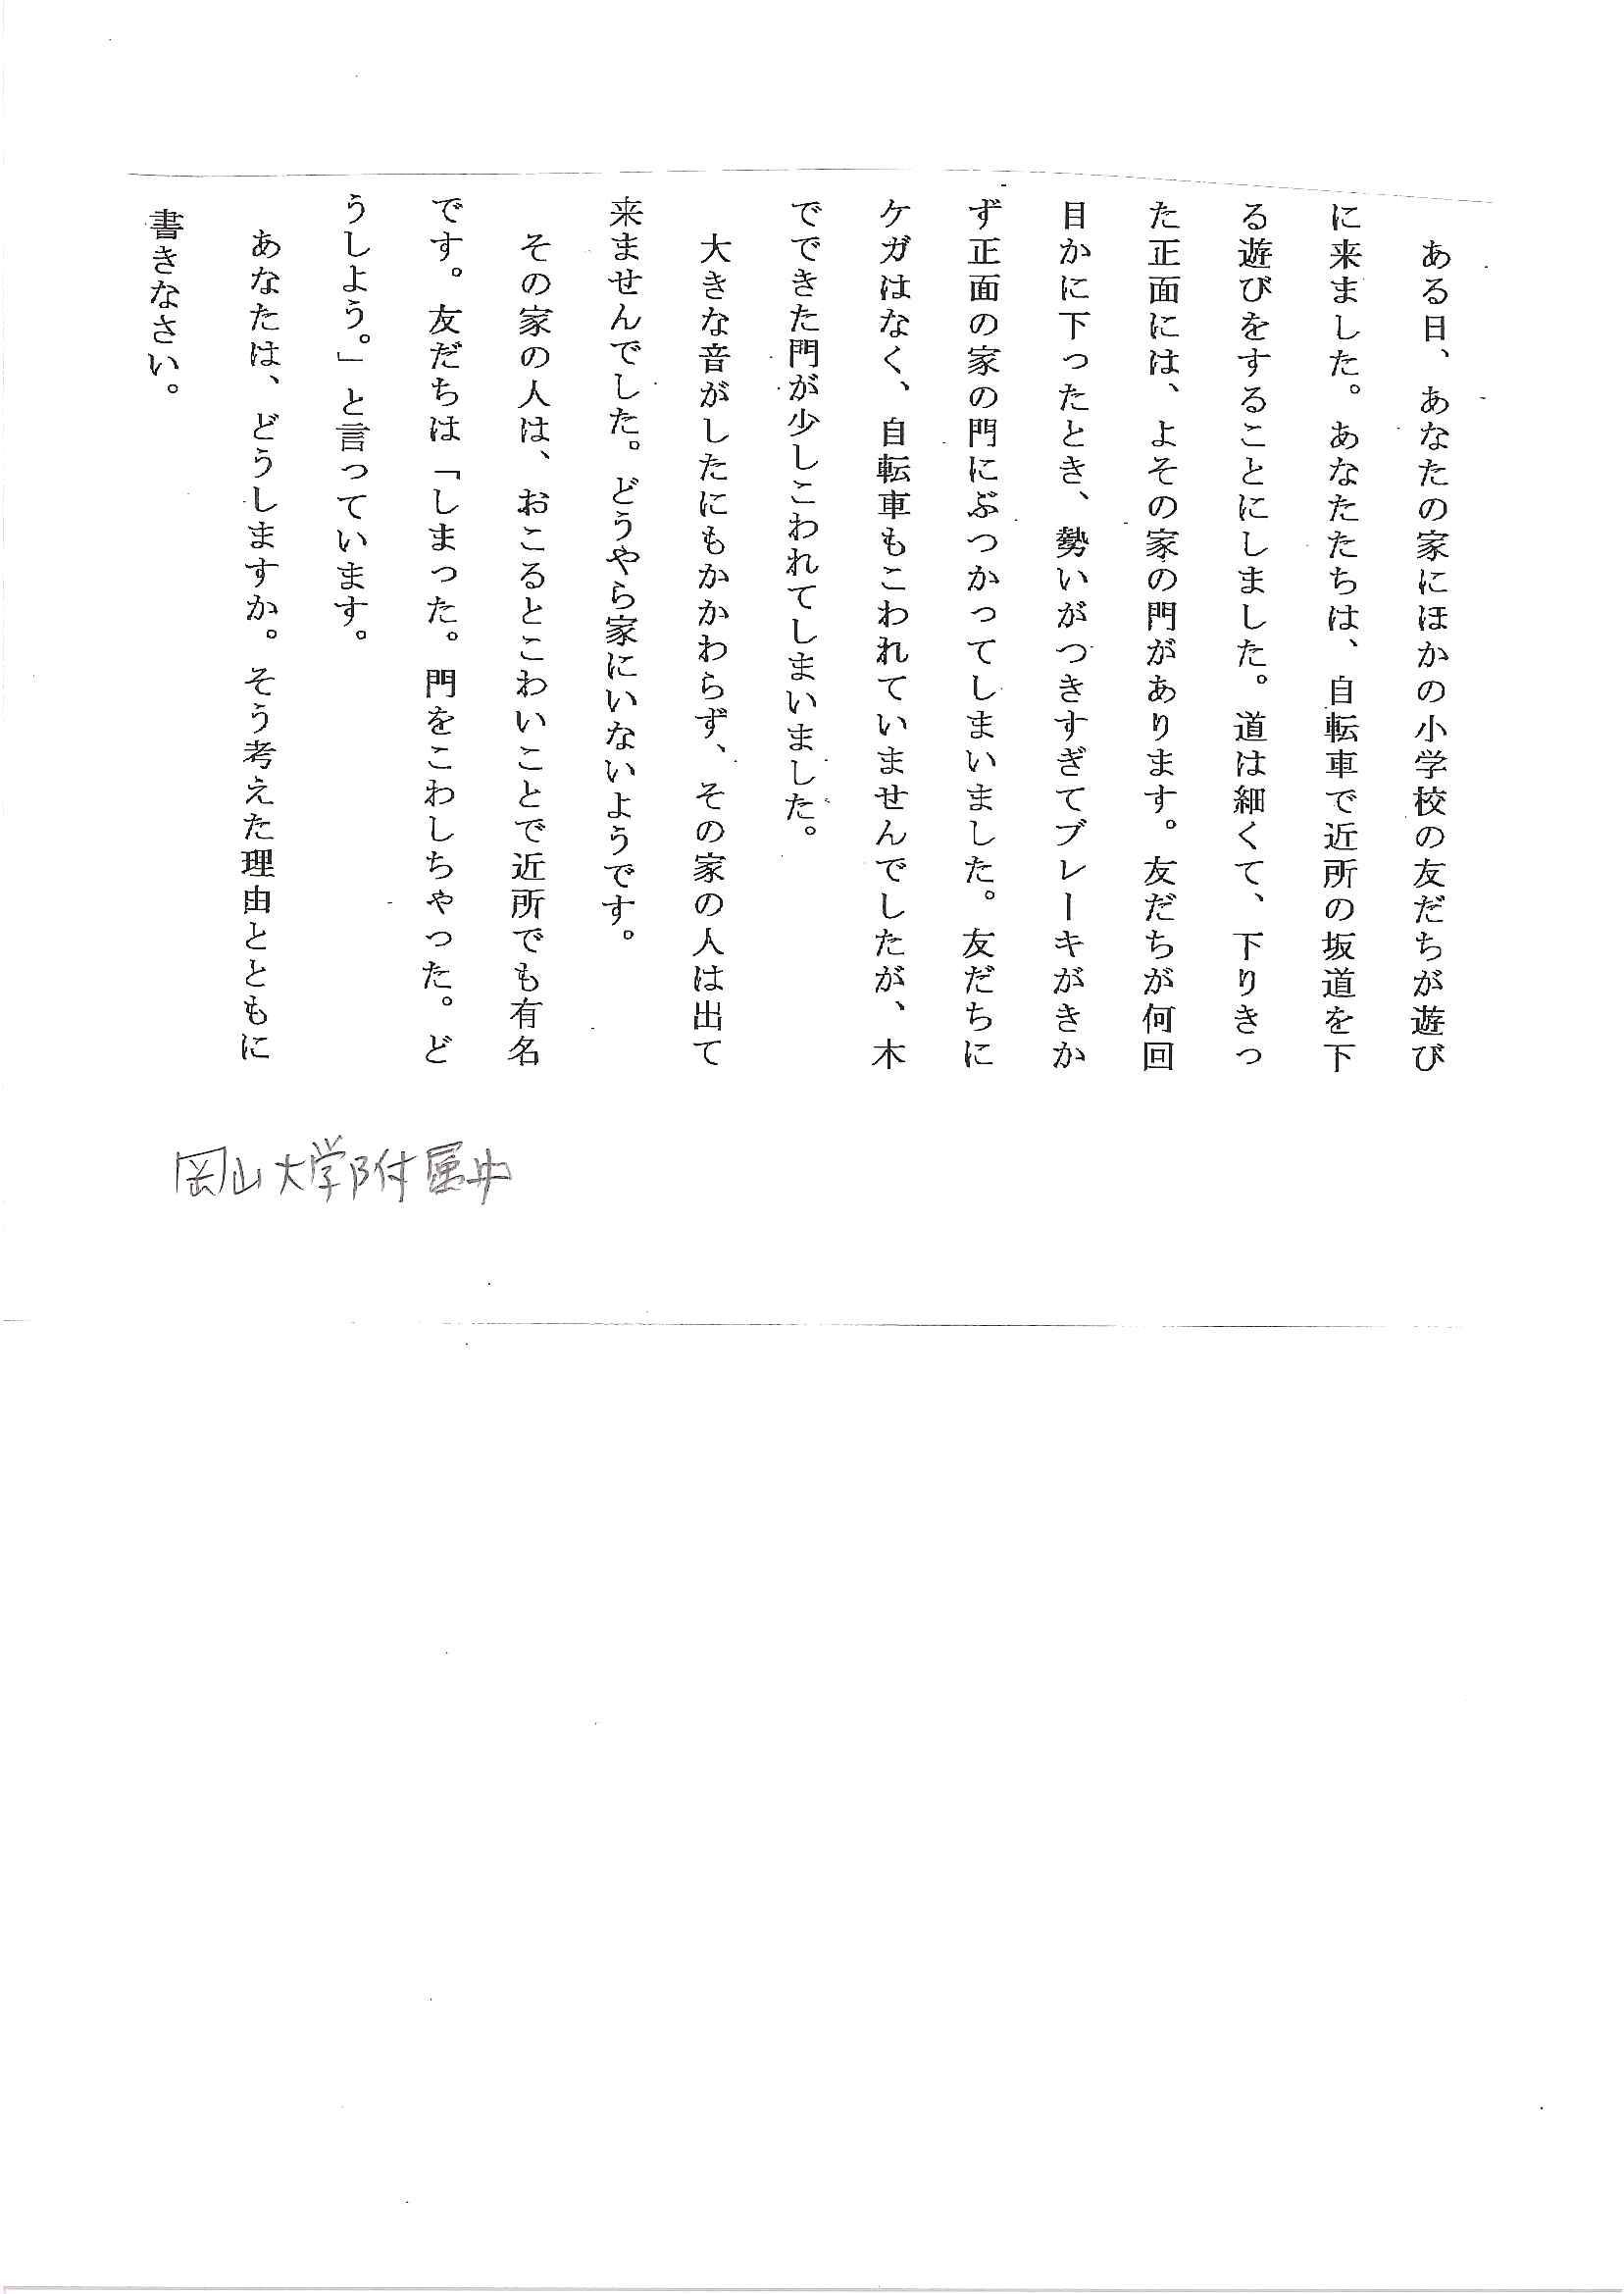 ある日、あなたの家にほかの小学校の友だちが遊び
に来ました。あなたたちは、自転車で近所の坂道を下
る遊びをすることにしました。道は細くて、下りきっ
た正面には、よその家の門があります。友だちが何回
目かに下ったとき、勢いがつきすぎてブレーキがきか
ず正面の家の門にぶつかってしまいました。友だちに
ケガはなく、自転車もこわれていませんでしたが、木
でできた門が少しこわれてしまいました。
大きな音がしたにもかかわらず、その家の人は出て
来ませんでした。どうやら家にいないようです。
その家の人は、おこるとこわいことで近所でも有名
です。友だちは「しまった。門をこわしちゃった。ど
うしよう。」と言っています。
あなたは、どうしますか。そう考えた理由とともに
書きなさい。
岡山大学附属中